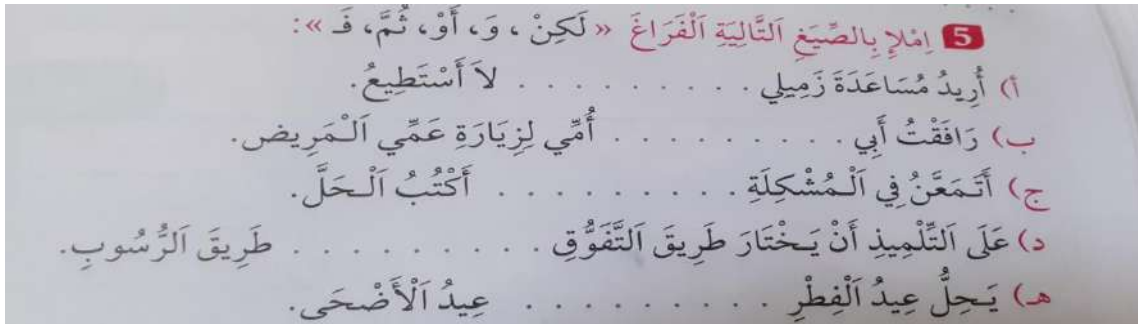 5 اِمْلَإِ بِالصِّيَغِ اَلتَّالِيَةِ اَلْفَرَاغَ « لَكِنْ ، وَ، أَوْ، ثُمَّ، فَـ »:
أ) أُرِيدُ مُسَاعَدَةَ زَمِيلِي . . . . . . . . . . لاَ أَسْتَطِيعُ.
ب) رَافَقْتُ أَبِي . . . . . . . . . . أُمِّي لِزِيَارَةِ عَمِّي اَلْمَرِيض.
ج) أَتَمَعَّنُ فِي اَلْمُشْكِلَةِ . . . . . . . . . . أَكْتُبُ اَلْحَلَّ.
د) عَلَى اَلتِّلْمِيذِ أَنْ يَخْتَارَ طَرِيقَ اَلتَّفَوُّقِ . . . . . . . . . . طَرِيقَ اَلرُّسُوبِ.
هـ) يَحِلُّ عِيدُ اَلْفِطْرِ . . . . . . . . . . عِيدُ اَلْأَضْحَى.